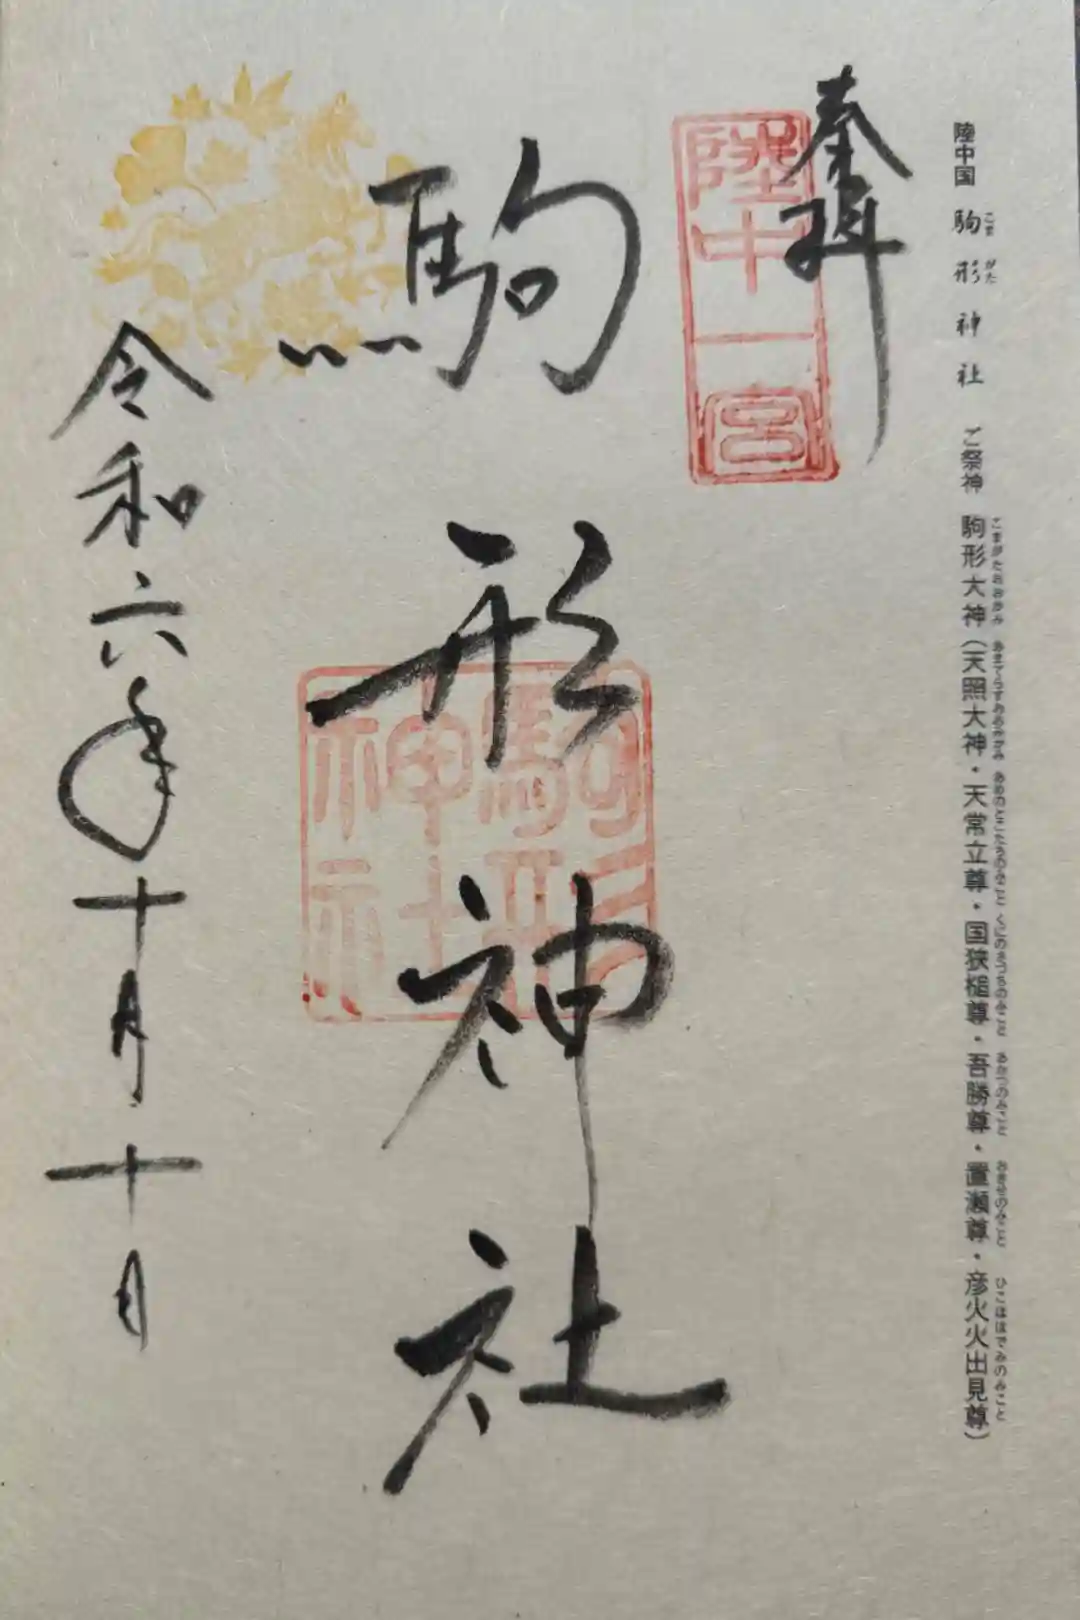 陸中国 駒形神社 ご祭神 駒形大神（天照大神・天常立尊・国狭槌尊・吾勝尊・置瀬尊・彦火火出見尊）
こま がた こまがたおおかみ あまてらすおおみかみ あめのとこたちのみこと くにのさつちのみこと あかつのみこと おきせのみこと ひこほほでみのみこと
奉拝
陸中一宮
駒形神社
駒形神社
令和六年十月十日